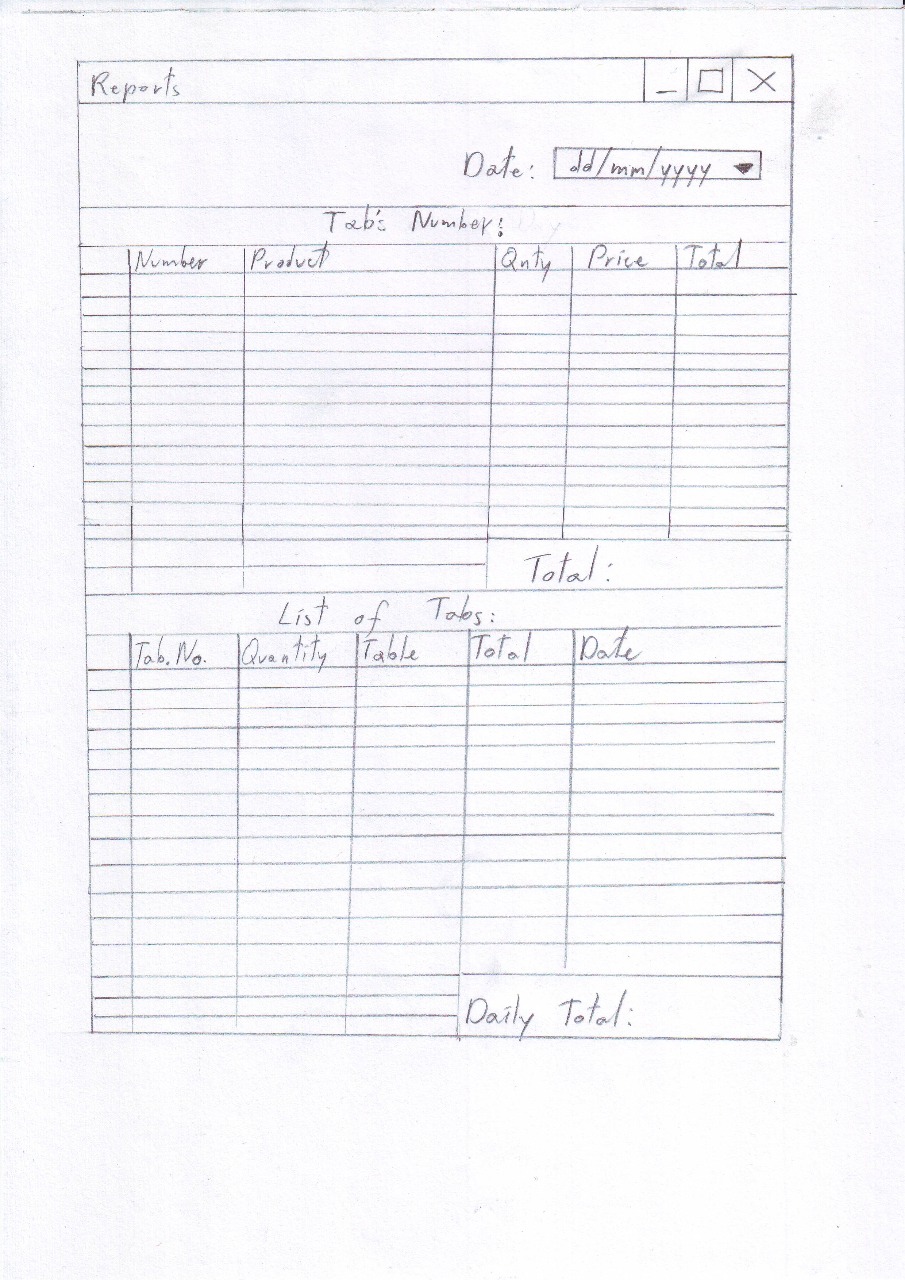 Reports
Date: dd/mm/yyyy
Tab's Number:
Number Product Qnty Price Total
Total:
List of Tabs:
Tab. No. Quantity Table Total Date
Daily Total: